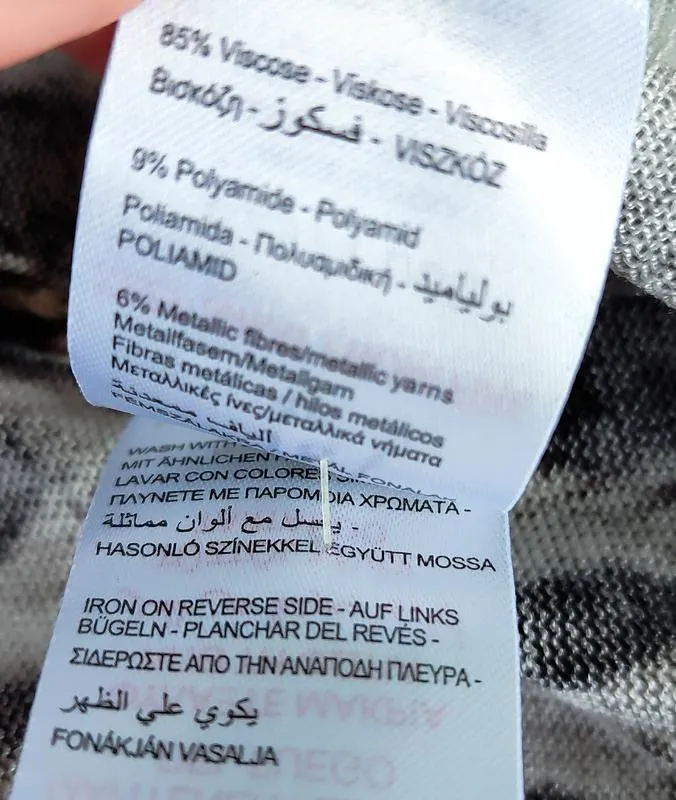 85% Viscose - Viskose - Viscosilla
Βισκόζη - فسكوز - VISZKÓZ
9% Polyamide - Polyamid
Poliamida - Πολυαμιδική - بولياميد
POLIAMID
6% Metallic fibres/metallic yarns
Metallfasern/Metallgarn
Fibras metálicas / hilos metálicos
Μεταλλικές ίνες/μεταλλικά νήματα
WASH WITH
MIT ÄHNLICHEN
LAVAR CON COLORES
ΠΛΥΝΕΤΕ ΜΕ ΠΑΡΟΜΟΙΑ ΧΡΩΜΑΤΑ -
يغسل مع ألوان مماثلة -
HASONLÓ SZÍNEKKEL EGYÜTT MOSSA
IRON ON REVERSE SIDE - AUF LINKS
BÜGELN - PLANCHAR DEL REVÉS -
ΣΙΔΕΡΩΣΤΕ ΑΠΟ ΤΗΝ ΑΝΑΠΟΔΗ ΠΛΕΥΡΑ -
يكوي علي الظهر
FONÁKJÁN VASALJA